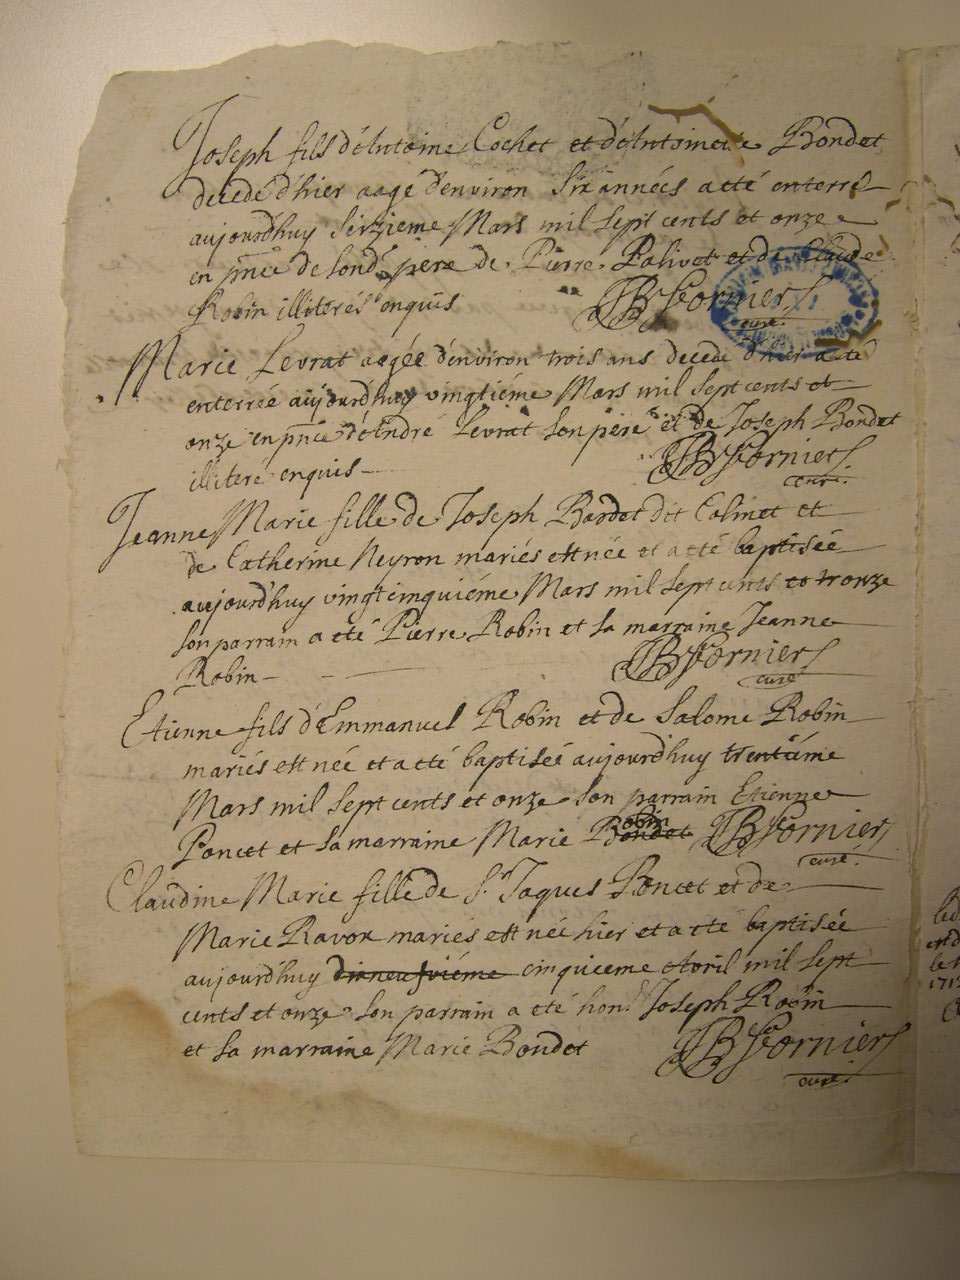 Joseph fils d'Antoine Cochet et d'Antoinette Bondet
decedé d'hier aagé d'environ six années a eté enterré
aujourd'huy seizieme Mars mil sept cents et onze
en pnce de sond. pere de Pierre Palivet et de Claude
Robin illiterés enquis JB Fornier
curé
Marie Levrat aagée d'environ trois ans decedé d'hier a eté
enterrée aujourd'huy vingtiéme Mars mil sept cents et
onze en pnce d'André Levrat son pere et de Joseph Bondet
illiteré enquis JB Fornier
curé.
Jeanne Marie fille de Joseph Bardet dit Colinet et
de Catherine Neyron mariés est née et a eté baptisée
aujourd'huy vingtcinquiéme Mars mil sept cents et onze
son parrain a eté Pierre Robin et sa marraine Jeanne
Robin JB Fornier
curé
Etienne fils d'Emmanuel Robin et de Salome Robin
mariés est née et a eté baptiseé aujourd'huy trentiéme
Mars mil sept cents et onze son parrain Etienne
Poncet et sa marraine Marie Bondet Robin JB Fornier
curé.
Claudine Marie fille de Sr. Jaques Poncet et de
Marie Ravox mariés est née hier et a eté baptisée
aujourd'huy dixneufviéme cinquieme Avril mil sept
cents et onze son parrain a eté hon. Joseph Robin
et sa marraine Marie Bondet JB Fornier
curé.